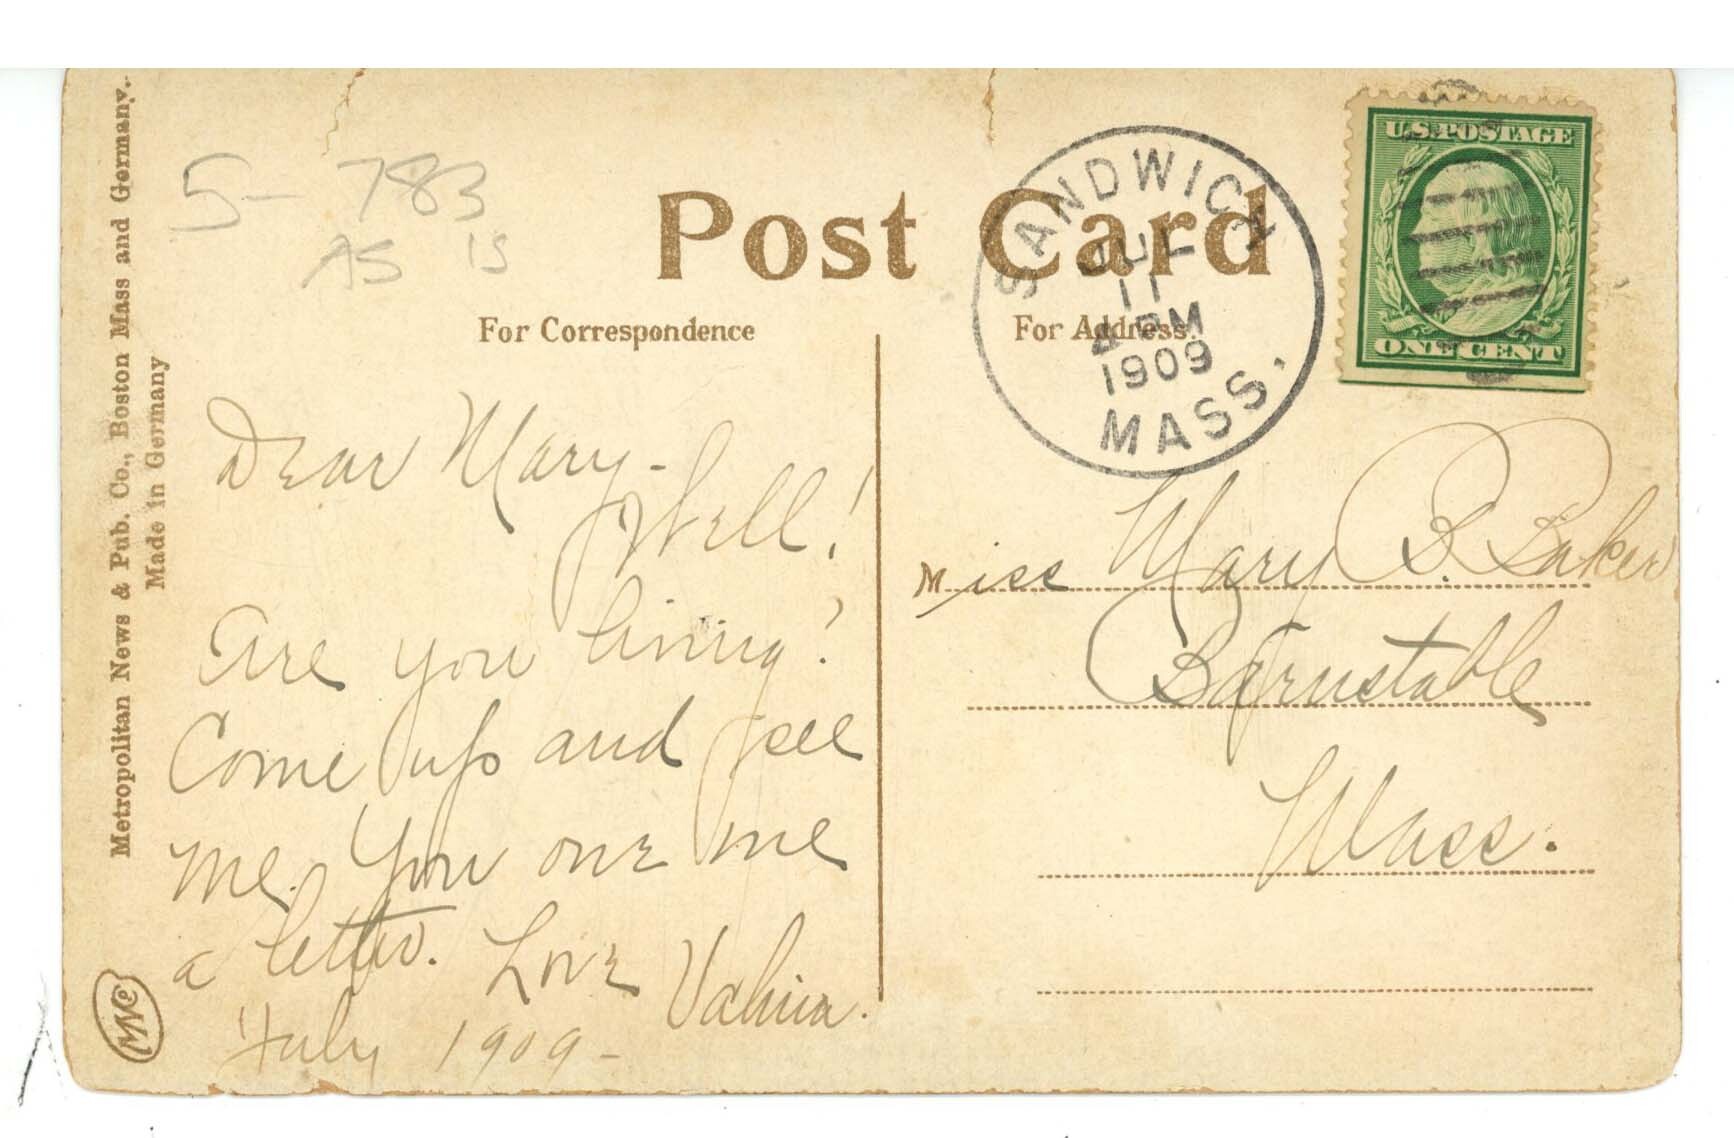 Metropolitan News & Pub. Co., Boston Mass and Germany.
Made in Germany
5- 783
AS IS
Post Card
For Correspondence
For Address.
SANDWICH
JUL
11
4 PM
1909
MASS.
U.S. POSTAGE
ONE CENT
Dear Mary-
Well!
Are you living?
Come up and see
me. You owe me
a letter. Love
July 1909-
Miss Mary B. Baker
Barnstable
Mass.